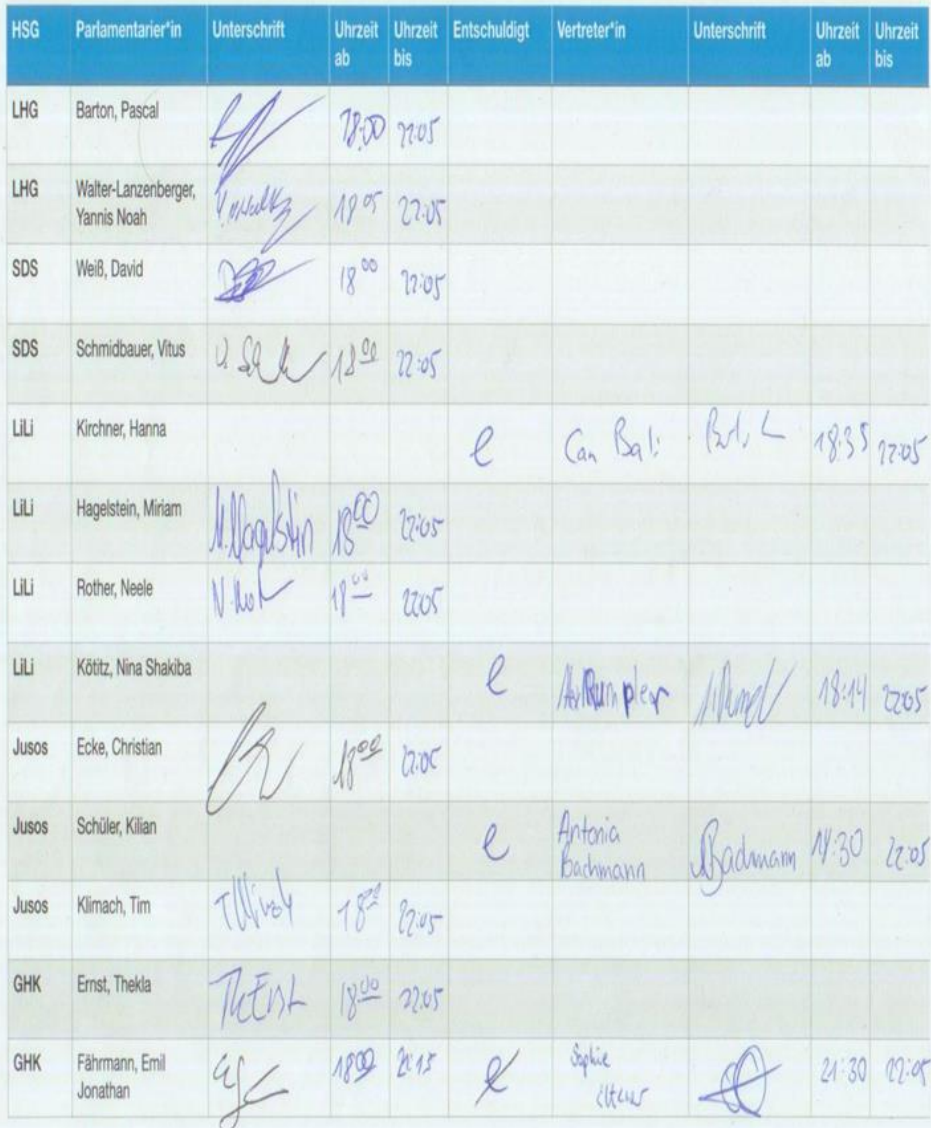 HSG Parlamentarier*in Unterschrift Uhrzeit ab Uhrzeit bis Entschuldigt Vertreter*in Unterschrift Uhrzeit ab Uhrzeit bis
LHG Barton, Pascal 18:00 22:05
LHG Walter-Lanzenberger, Yannis Noah 18 05 22:05
SDS Weiß, David 18 00 22:05
SDS Schmidbauer, Vitus 18 00 22:05
LiLi Kirchner, Hanna e Can Bali 18:35 22:05
LiLi Hagelstein, Miriam M. Hagelstein 18 00 22:05
LiLi Rother, Neele 18 00 22:05
LiLi Kötitz, Nina Shakiba e Rumpler 18:14 22:05
Jusos Ecke, Christian 18 00 22:05
Jusos Schüler, Kilian e Antonia Bachmann ABachmann 22:05
Jusos Klimach, Tim 18 22:05
GHK Ernst, Thekla ThErnst 18 00 22:05
GHK Fährmann, Emil Jonathan 18 00 e Sophie 21:30 22:05